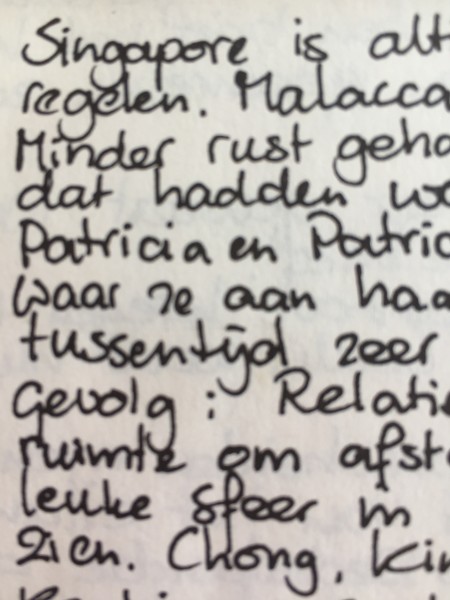 Singapore is alt
regelen. Malacca
Minder rust geho
dat hadden we
Patricia en Patric
waar ze aan haa
tussentijd zeer
Gevolg : Relatie
ruimte om afst
leuke sfeer in
zien. Chong, Kin